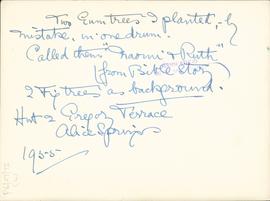 Two Gum trees I planted, - by
mistake, in one drum.
Called them "Naomi & Ruth"
(from Bible Story)
2 Fig trees as background.
Hut 2 Gregory Terrace
Alice Springs
1955